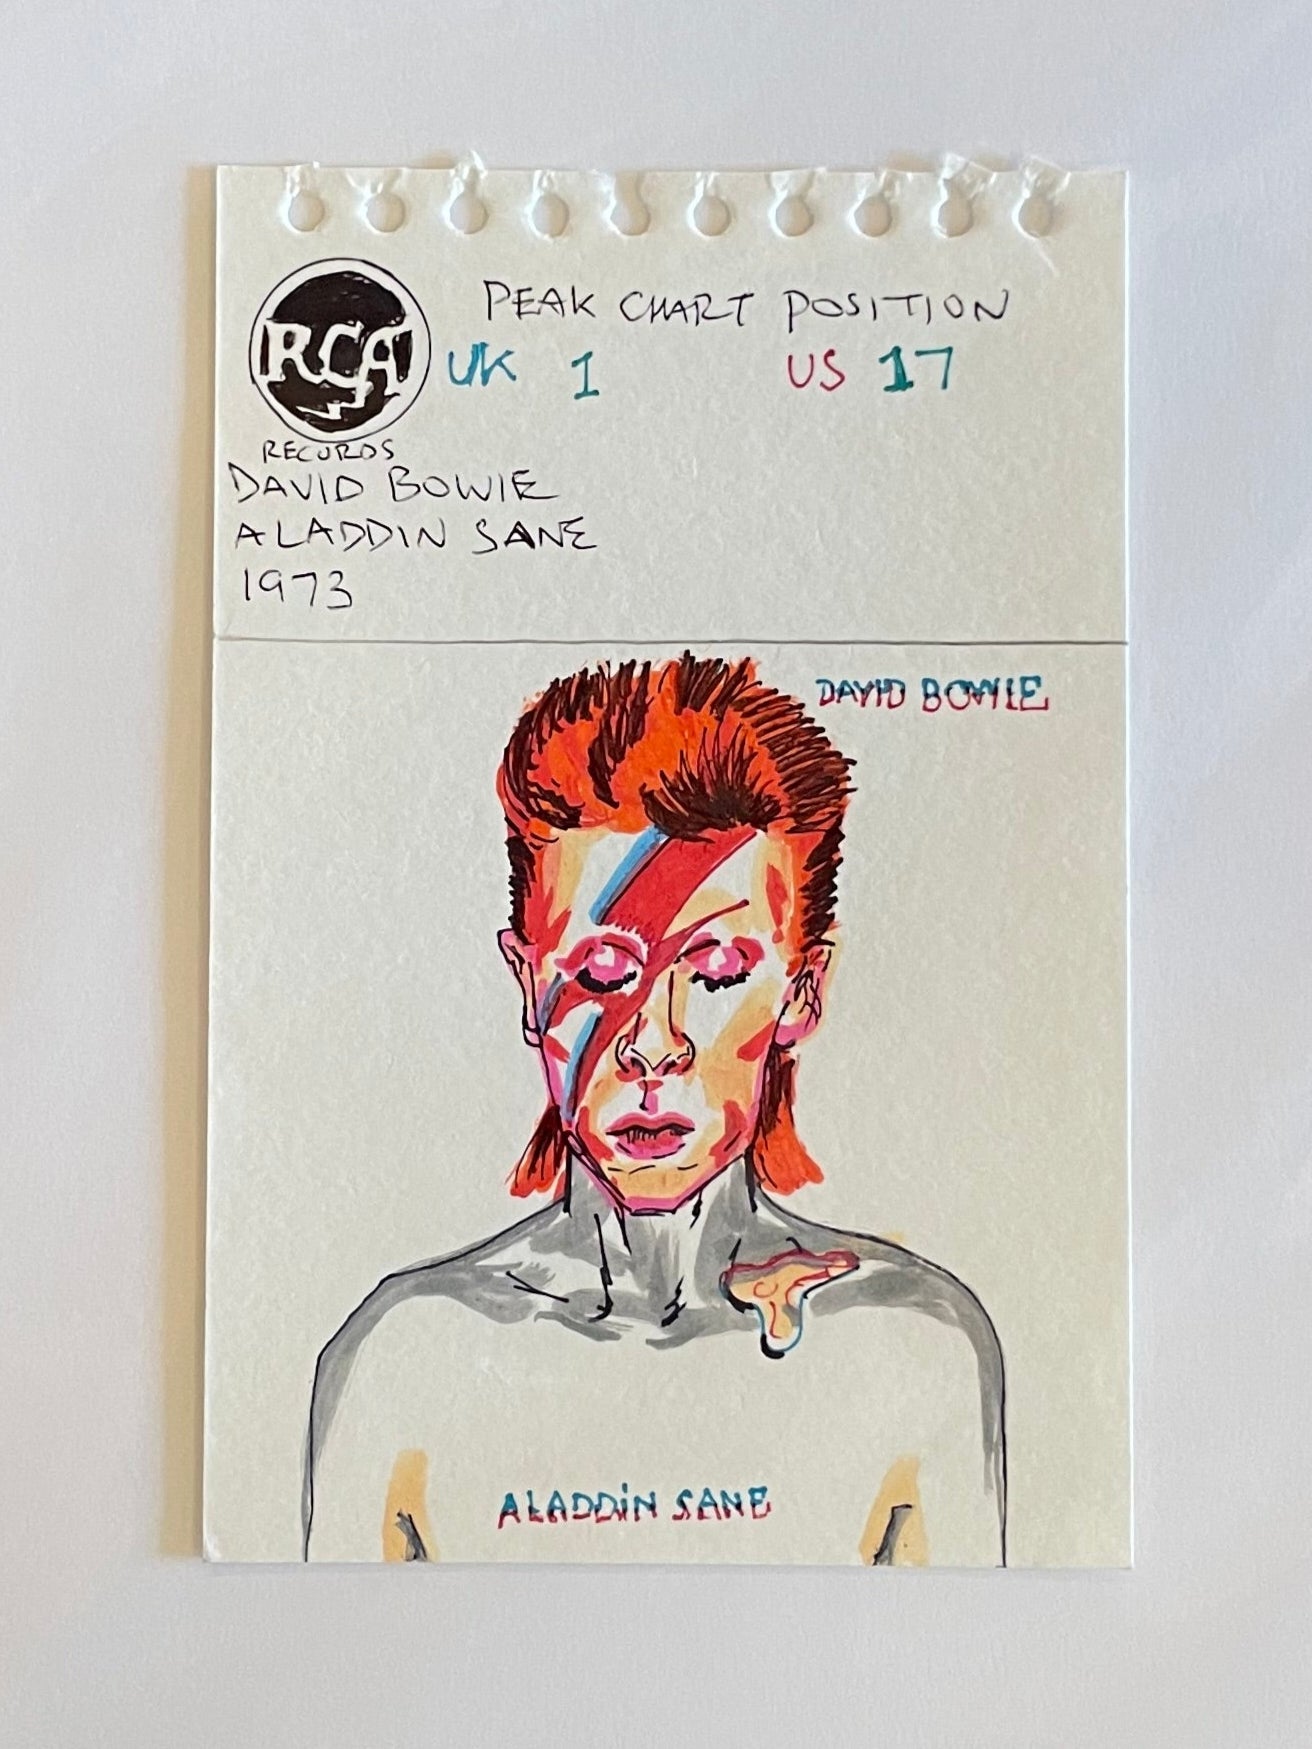 RCA
RECORDS
PEAK CHART POSITION
UK 1 US 17
DAVID BOWIE
ALADDIN SANE
1973
DAVID BOWIE
ALADDiN SANE